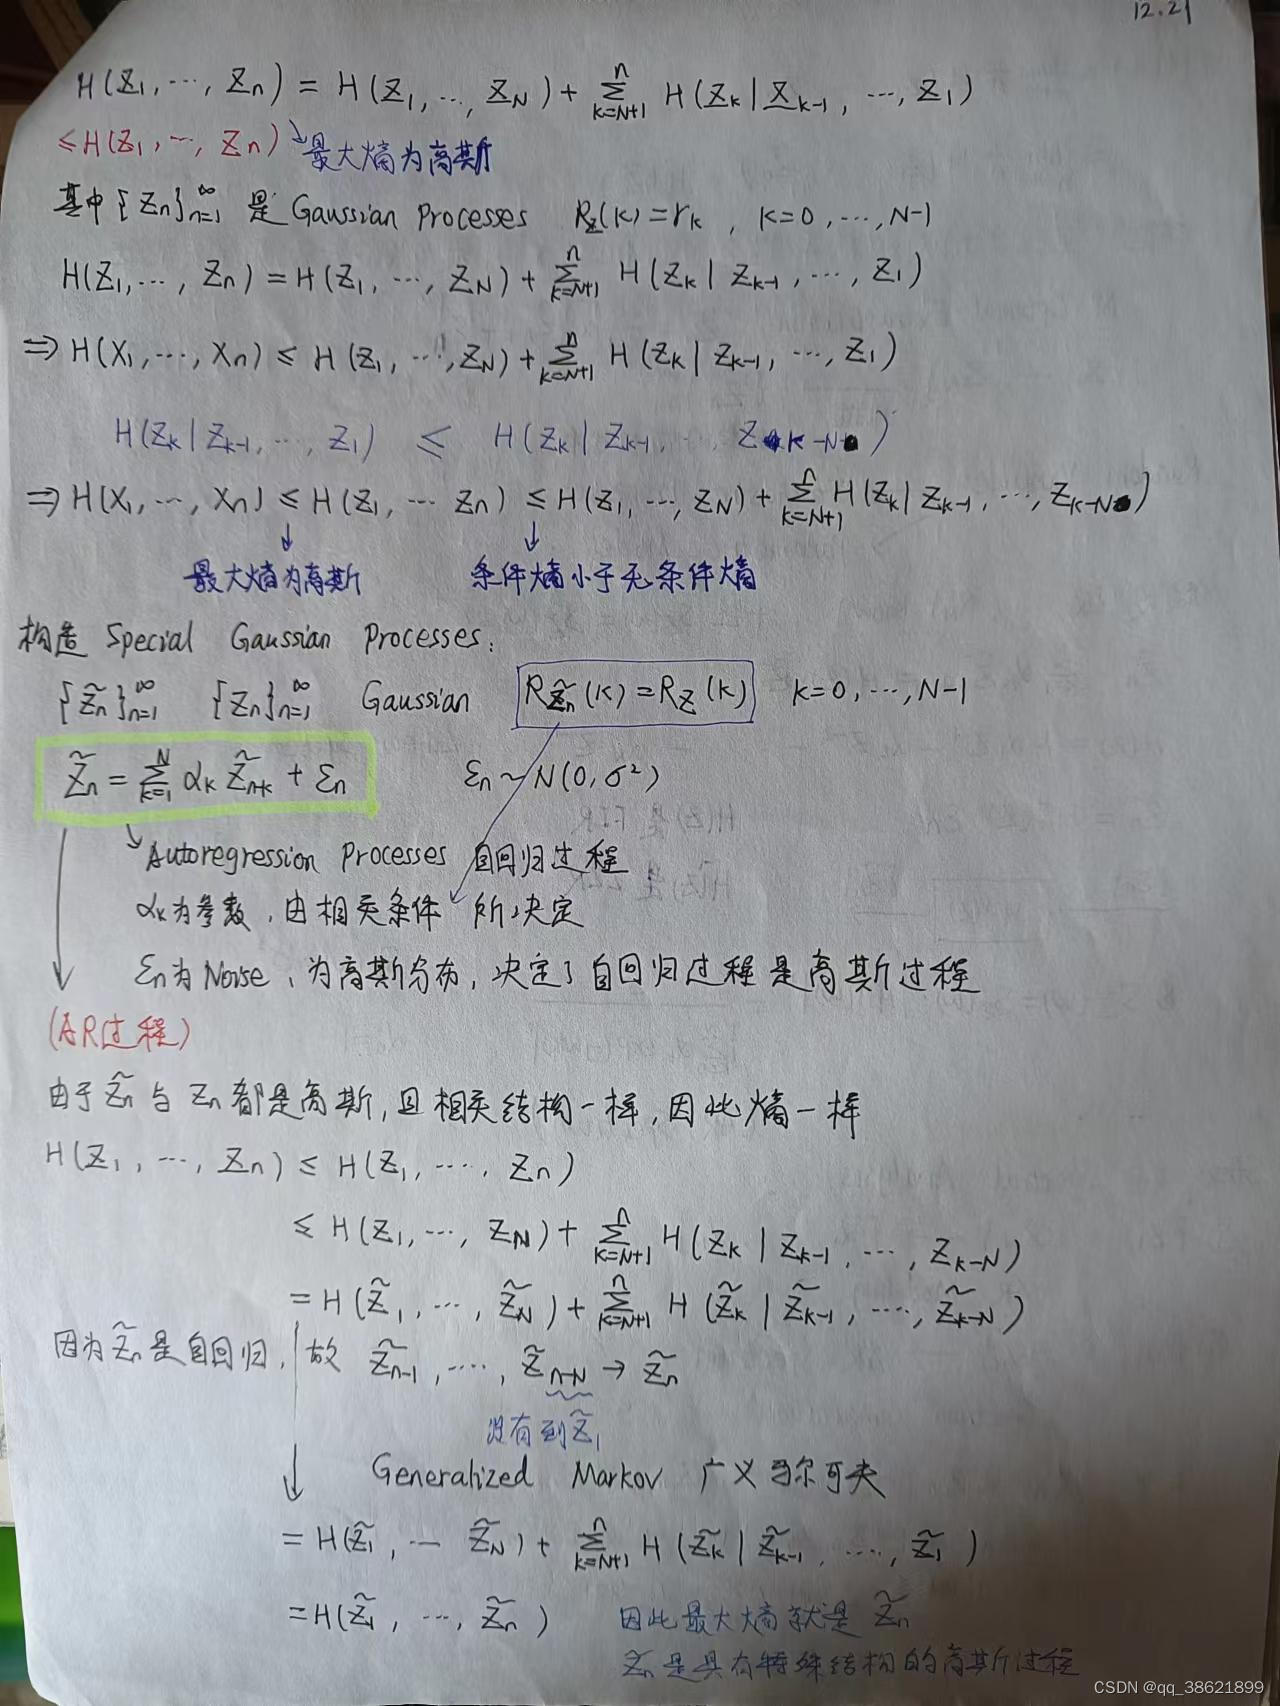 12.21
H(Z₁, ⋯, Zₙ) = H(Z₁, ⋯, Z_N) + ∑_{k=N+1}^{n} H(Z_k | X_{k-1}, ⋯, Z₁)
≤ H(Z₁, ⋯, Zₙ) ↘ 最大熵为高斯
其中 {Zₙ}_{n=1}^{∞} 是 Gaussian Processes R_Z(k) = r_k , k=0, ⋯, N-1
H(Z₁, ⋯, Zₙ) = H(Z₁, ⋯, Z_N) + ∑_{k=N+1}^{n} H(Z_k | Z_{k-1}, ⋯, Z₁)
⇒ H(X₁, ⋯, Xₙ) ≤ H(Z₁, ⋯, Z_N) + ∑_{k=N+1}^{n} H(Z_k | Z_{k-1}, ⋯, Z₁)
H(Z_k | Z_{k-1}, ⋯, Z₁) ≤ H(Z_k | Z_{k-1}, ⋯ Z_{k-N})
⇒ H(X₁, ⋯, Xₙ) ≤ H(Z₁, ⋯ Zₙ) ≤ H(Z₁, ⋯, Z_N) + ∑_{k=N+1}^{n} H(Z_k | Z_{k-1}, ⋯, Z_{k-N})
↓ ↓
最大熵为高斯 条件熵小于无条件熵
构造 Special Gaussian Processes:
{Z̃ₙ}_{n=1}^{∞} {Zₙ}_{n=1}^{∞} Gaussian R_{Z̃ₙ}(k) = R_Z(k) k=0, ⋯, N-1
Z̃ₙ = ∑_{k=1}^{N} α_k Z̃_{n-k} + εₙ εₙ ~ N(0, σ²)
Autoregression Processes 自回归过程
α_k为参数, 由相关条件 所决定
εₙ为Noise, 为高斯分布, 决定了自回归过程是高斯过程
(AR过程)
由于Z̃ₙ与Zₙ都是高斯, 且相关结构一样, 因此熵一样
H(Z₁, ⋯, Zₙ) ≤ H(Z₁, ⋯, Zₙ)
≤ H(Z₁, ⋯, Z_N) + ∑_{k=N+1}^{n} H(Z_k | Z_{k-1}, ⋯, Z_{k-N})
= H(Z̃₁, ⋯, Z̃_N) + ∑_{k=N+1}^{n} H(Z̃_k | Z̃_{k-1}, ⋯, Z̃_{k-N})
因为Z̃ₙ是自回归, 故 Z̃_{n-1}, ⋯, Z̃_{n-N} → Z̃ₙ
没有到Z̃₁
Generalized Markov 广义马尔可夫
= H(Z̃₁, ⋯ Z̃_N) + ∑_{k=N+1}^{n} H(Z̃_k | Z̃_{k-1}, ⋯, Z̃₁)
= H(Z̃₁, ⋯, Z̃ₙ) 因此最大熵就是 Z̃ₙ
Z̃ₙ是具有特殊结构的高斯过程
CSDN @qq_38621899